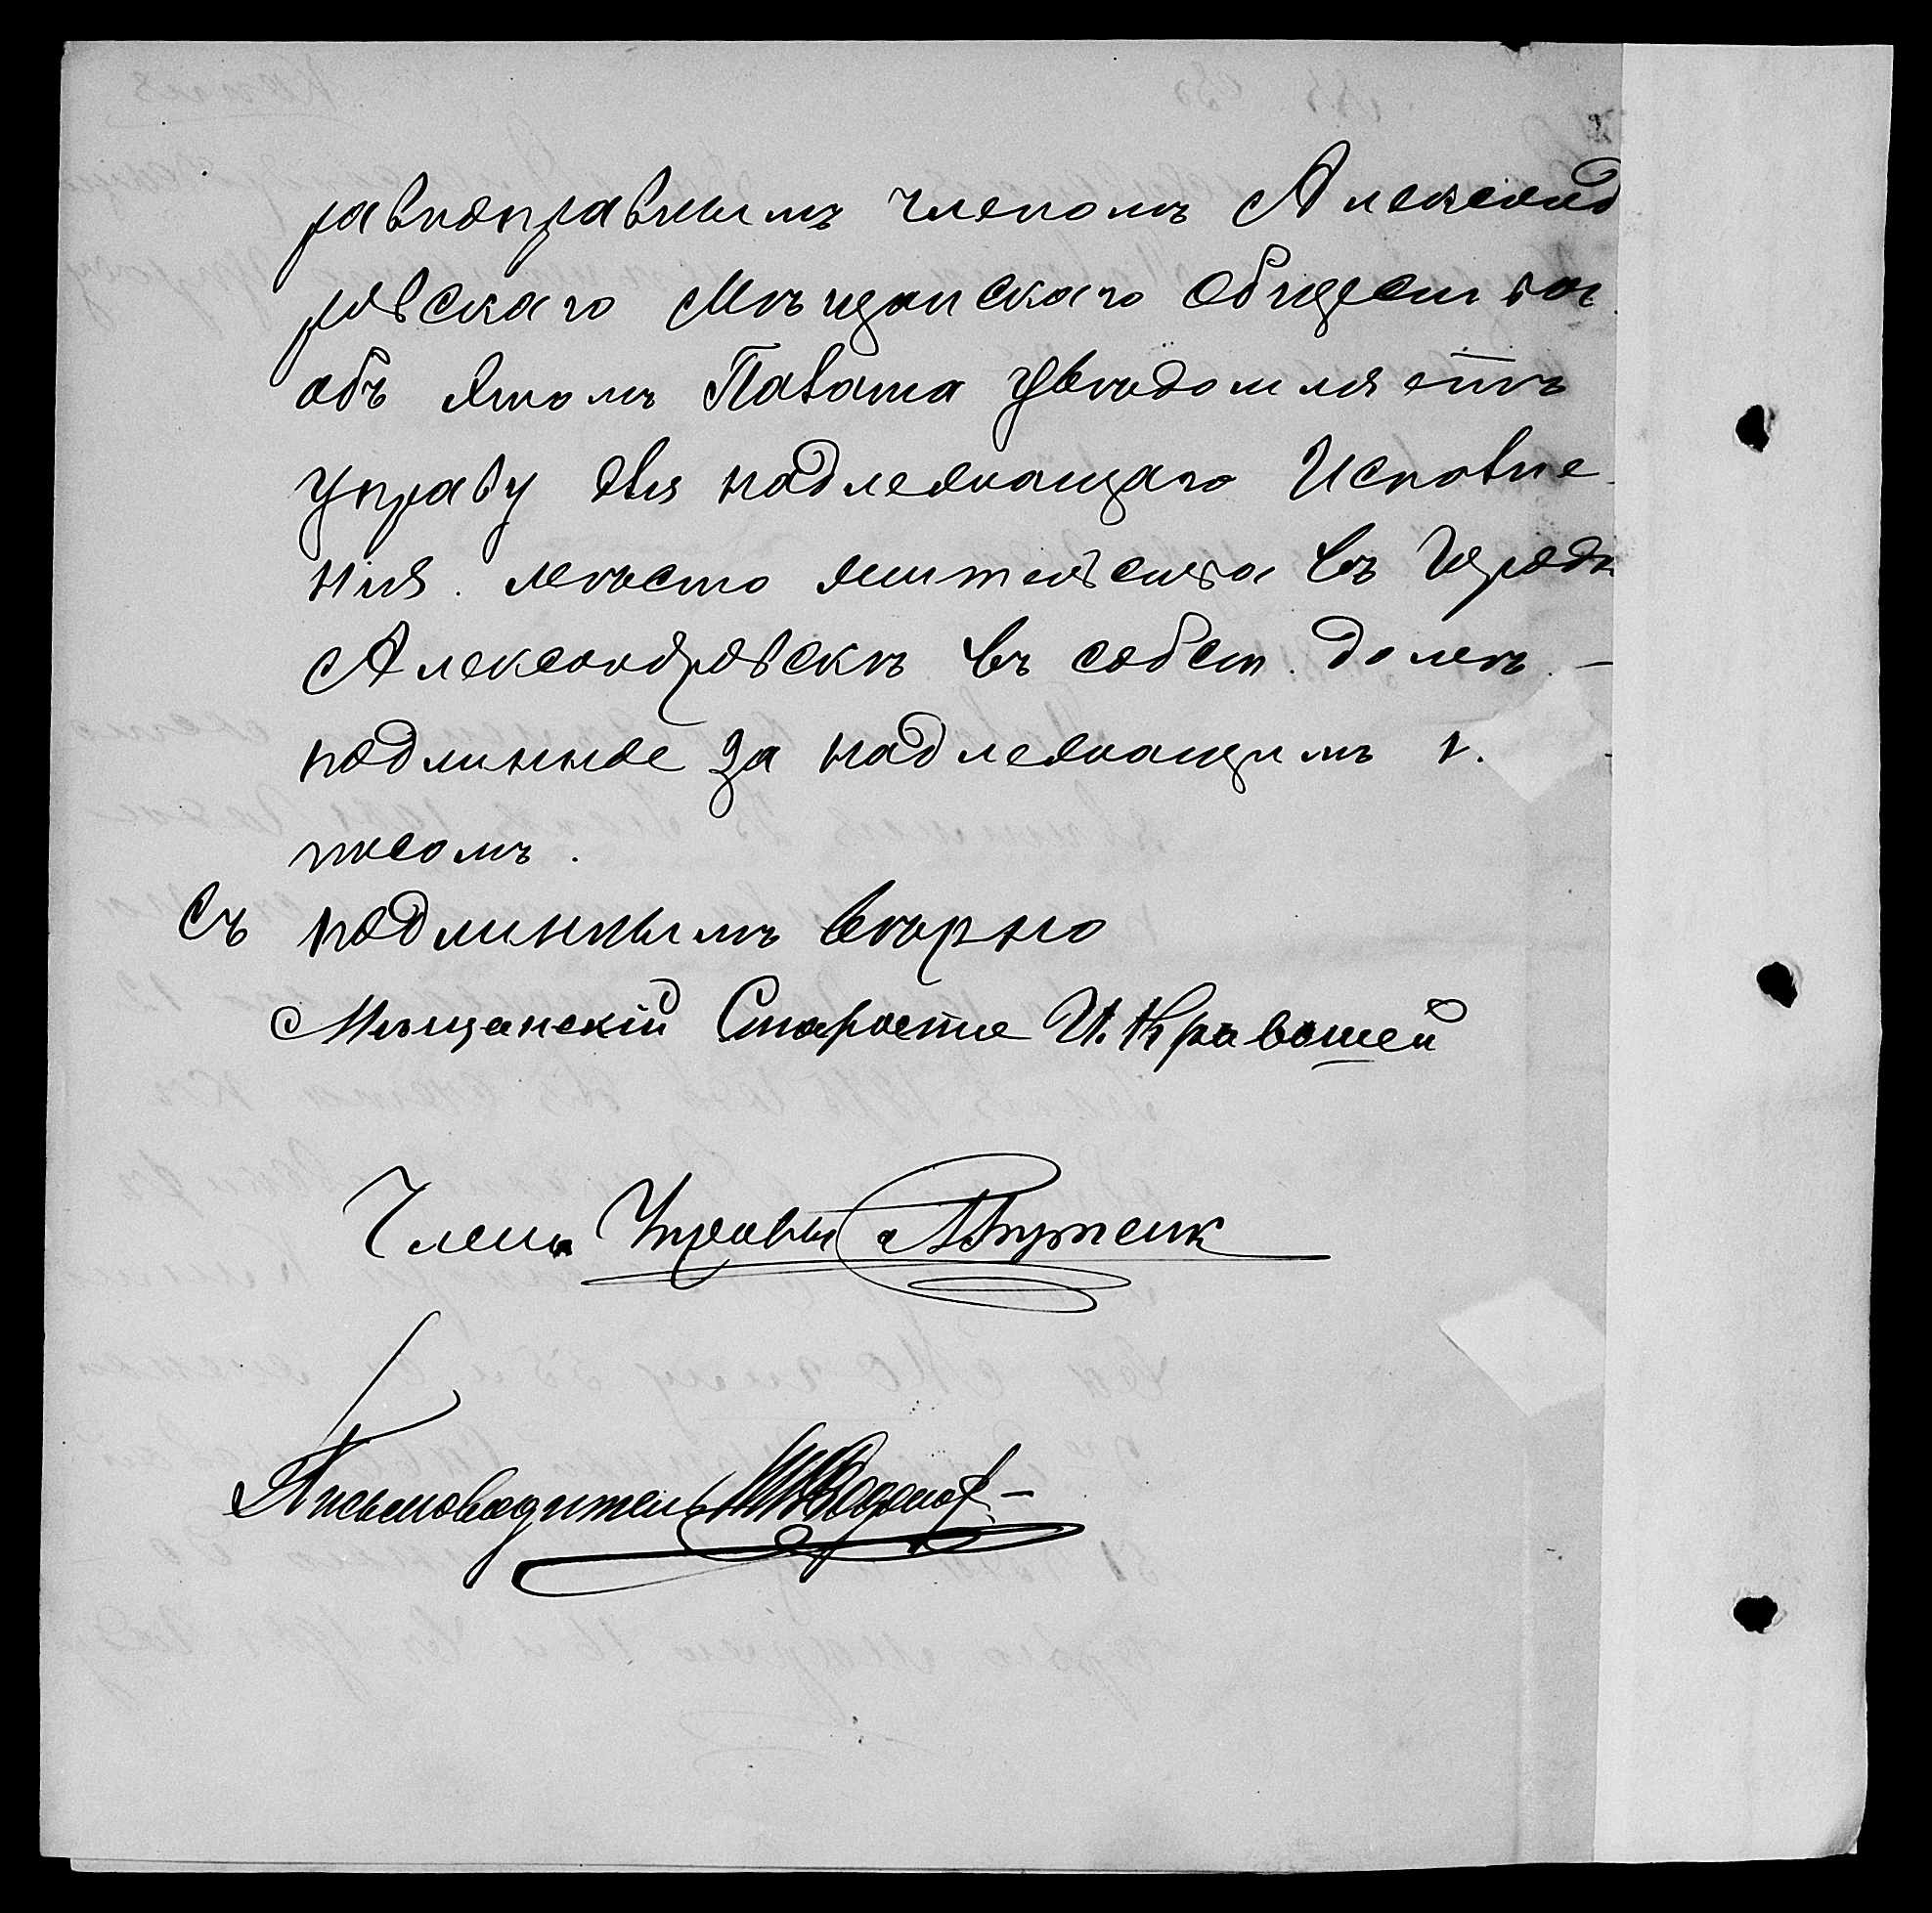 равноправнымъ членомъ Александ
ровскаго Мѣщанскаго общества
объ этомъ Палата увѣдомляетъ
управу для надлежащаго Исполне
нія. мѣсто жительства въ городѣ
Александровскѣ въ собст. домѣ. —
подлинное за надлежащимъ п.
писомъ.
Съ подлиннымъ вѣрно
Мѣщанскій Староста И. Кравошей
Членъ Управы
Письмоводитель